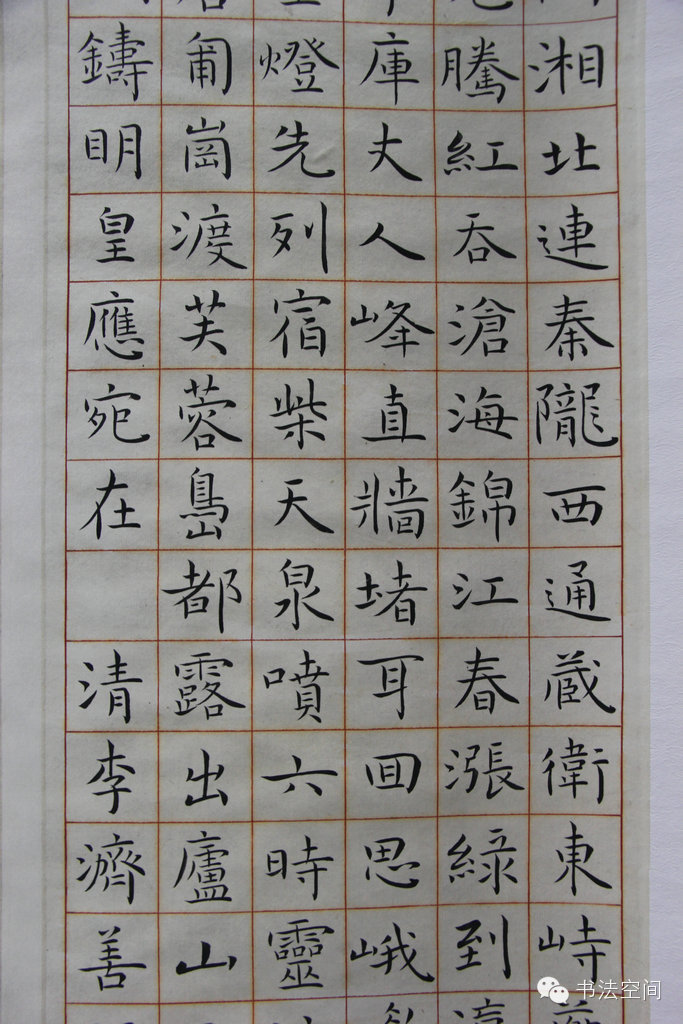 湘北連秦隴西通蔵衛東峙
騰紅吞滄海錦江春漲綠到
庫丈人峰直牆堵耳回思峨
燈先列宿柴天泉噴六時靈
匍崗渡芙蓉島都露出廬山
鑄明皇應宛在 清李濟善
书法空间